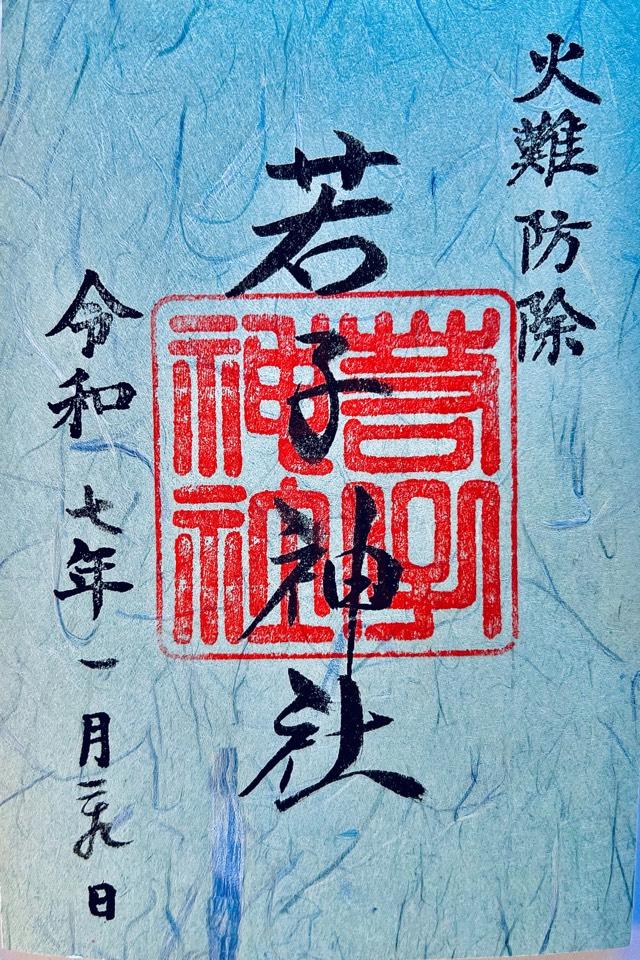 火難防除
若子神社
若子神社
令和七年一月二十九日